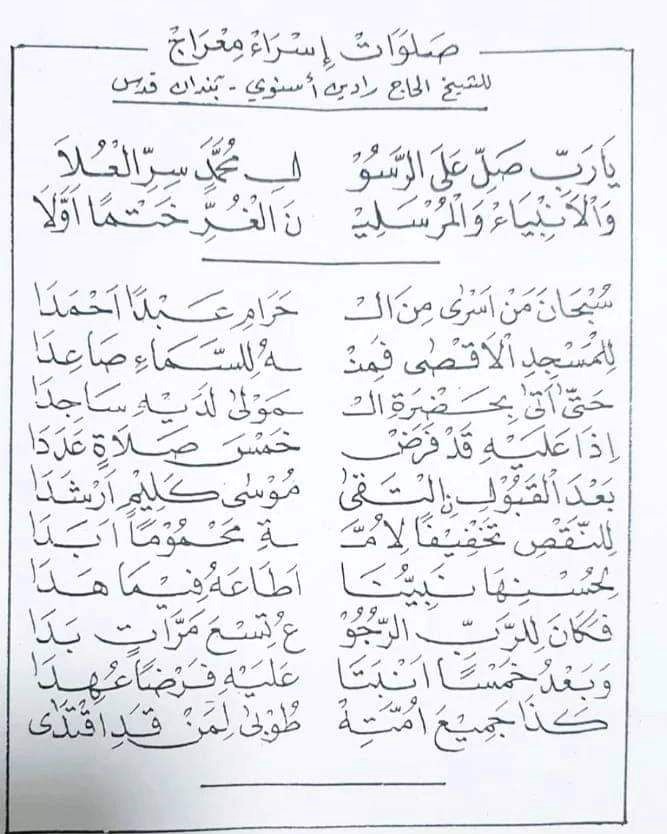 صَلَوَاتْ إِسْرَاءْ مِعْرَاجْ
للشيخ الحاج رادين أسنوي - بندان قدس
يَارَبِّ صَلِّ عَلَى الرَّسُوْ لِ مُحَمَّدٍ سِرِّ الْعُلاَ
وَالْاَنْبِيَاءْ وَالْمُرْسَلِيْـ ـنَ الْغُرِّ خَتْمًا اَوَّلَا
سُبْحَانَ مَنْ اَسْرَى مِنَ الْـ ـحَرَامِ عَبْدًا اَحْمَدَا
لِلْمَسْجِدِ الْاَقْصَى فَمِنْـ ـهُ لِلسَّمَاءِ صَاعِدَا
حَتَّى اَتَى بِحَضْرَةِ الْـ ـمَوْلَى لَدَيْهِ سَاجِدَا
اِذَا عَلَيْهِ قَدْ فَرَضْ خَمْسَ صَلَاةٍ عَدَدَا
بَعْدَ الْقَبُوْلِ اِلْتَقَى مُوْسَى كَلِيْمٍ اَرْشَدَا
لِلنَّقْصِ تَخْفِيْفًا لِاُمَّـ ـةِ مَحْمُوْمًا اَبَدَا
لِحُسْنِهَا نَبِيُّنَا اَطَاعَهُ فِيْمَا هَدَا
فَكَانَ لِلرَّبِّ الرُّجُوْ عُ تِسْعَ مَرَّاتٍ بَدَا
وَبَعْدُ خَمْسًا اَنْبَتَا عَلَيْهِ فَرْضًا عُهِدَا
كَذَا جَمِيْعَ اُمَّتِهْ طُوْبَى لِمَنْ قَدِ اقْتَدَى